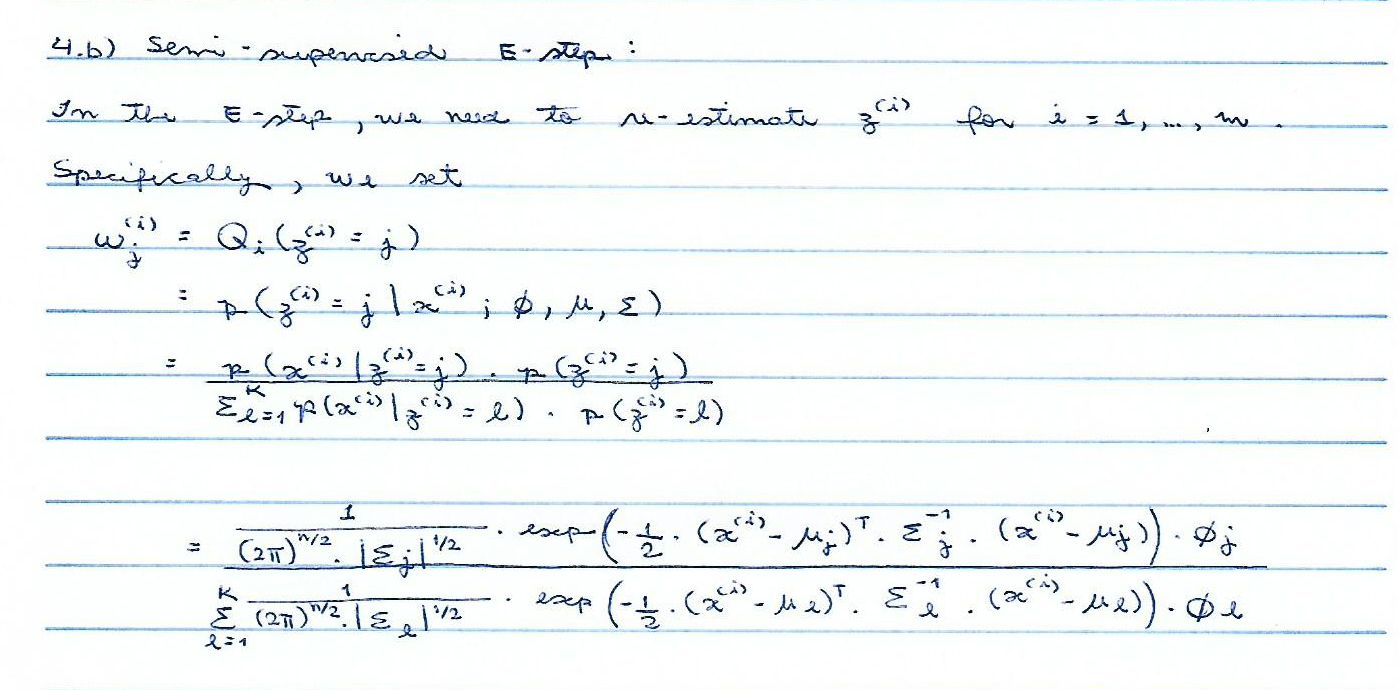 4.b) Semi-supervised E-step:
In the E-step, we need to re-estimate z^(i) for i = 1, ..., m.
Specifically, we set
w_j^(i) = Q_i(z^(i) = j)
= p(z^(i) = j | x^(i); ϕ, μ, Σ)
= p(x^(i) | z^(i) = j) · p(z^(i) = j)
Σ_{l=1}^K p(x^(i) | z^(i) = l) · p(z^(i) = l)
= 1/((2π)^{n/2} · |Σ_j|^{1/2}) · exp(-1/2 · (x^(i) - μ_j)^T · Σ_j^{-1} · (x^(i) - μ_j)) · ϕ_j
Σ_{l=1}^K 1/((2π)^{n/2} · |Σ_l|^{1/2}) · exp(-1/2 · (x^(i) - μ_l)^T · Σ_l^{-1} · (x^(i) - μ_l)) · ϕ_l